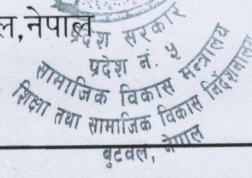 ल,नेपाल
प्रदेश सरकार
प्रदेश नं. ५
सामाजिक विकास मन्त्रालय
शिक्षा तथा सामाजिक विकास निर्देशनालय
बुटवल, नेपाल